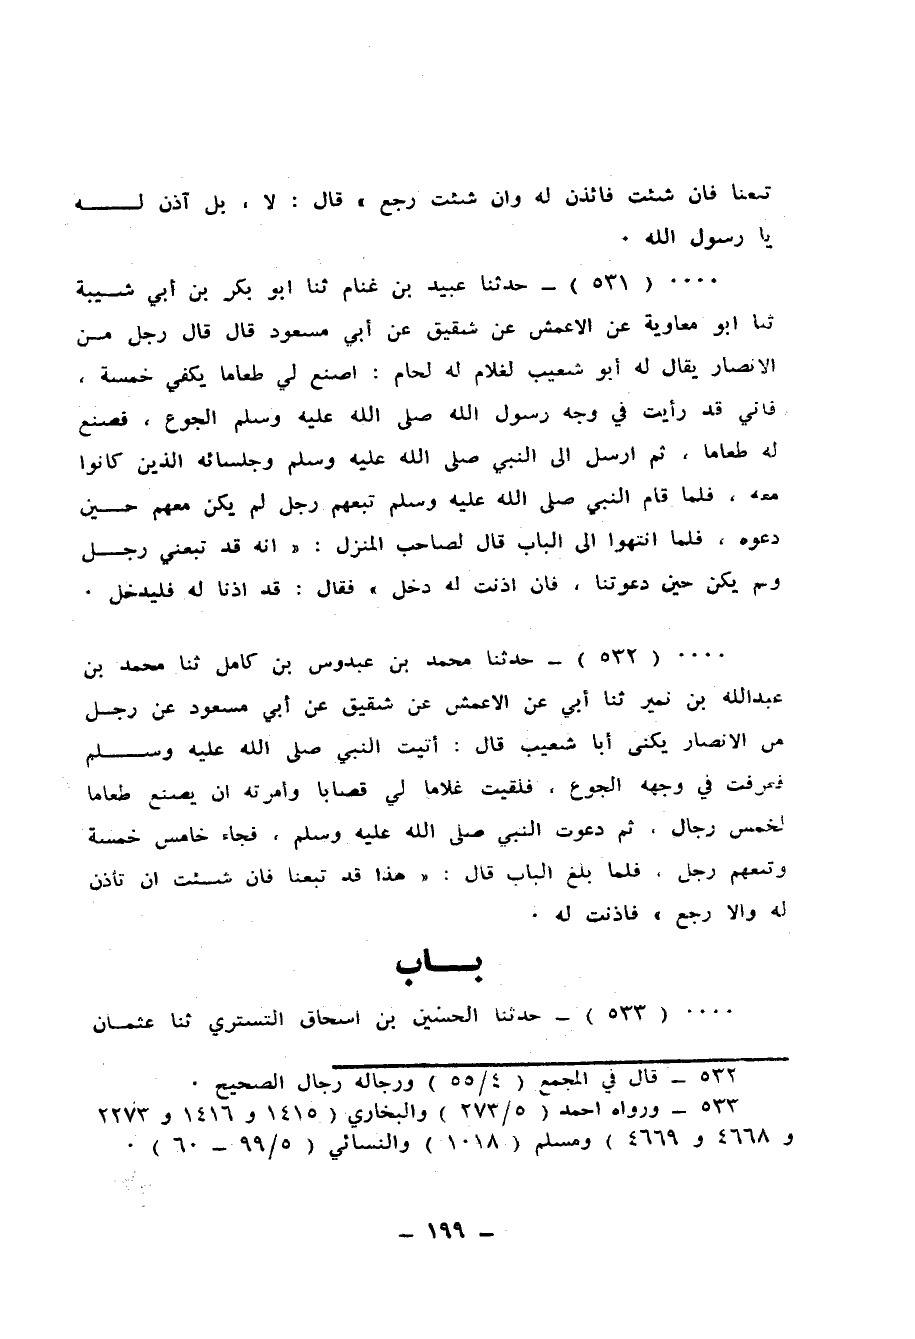 تبعنا فان شئت فائذن له وان شئت رجع » قال : لا ، بل آذن لــــــه
يا رسول الله ٠
٠٠٠٠ ( ٥٣١ ) ــ حدثنا عبيد بن غنام ثنا ابو بكر بن أبي شــيبة
ثنا ابو معاوية عن الاعمش عن شقيق عن أبي مسعود قال قال رجل مـن
الانصار يقال له أبو شعيب لغلام له لحام : اصنع لي طعاما يكفي خمسة ،
فاني قد رأيت في وجه رسول الله صلى الله عليه وسلم الجوع ، فصنع
له طعاما ، ثم ارسل الى النبي صلى الله عليه وسلم وجلسائه الذين كانوا
معه ، فلما قام النبي صلى الله عليه وسلم تبعهم رجل لم يكن معهم حــين
دعوه ، فلما انتهوا الى الباب قال لصاحب المنزل : « انه قد تبعني رجــل
ولم يكن حين دعوتنا ، فان اذنت له دخل » فقال : قد اذنا له فليدخل ٠
٠٠٠٠ ( ٥٣٢ ) ــ حدثنا محمد بن عبدوس بن كامل ثنا محمد بن
عبدالله بن نمير ثنا أبي عن الاعمش عن شقيق عن أبي مسعود عن رجــل
من الانصار يكنى أبا شعيب قال : أتيت النبي صلى الله عليه وســــلم
فعرفت في وجهه الجوع ، فلقيت غلاما لي قصابا وأمرته ان يصنع طعاما
لخمس رجال ، ثم دعوت النبي صلى الله عليه وسلم ، فجاء خامس خمسة
وتبعهم رجل ، فلما بلغ الباب قال : « هذا قد تبعنا فان شــئت ان تأذن
له والا رجع » فاذنت له ٠
بــــاب
٠٠٠٠ ( ٥٣٣ ) ــ حدثنا الحسين بن اسحاق التستري ثنا عثمــان
٥٣٢ ــ قال في المجمع ( ٥٥/٤ ) ورجاله رجال الصحيح ٠
٥٣٣ ــ ورواه احمد ( ٢٧٣/٥ ) والبخاري ( ١٤١٥ و ١٤١٦ و ٢٢٧٣
و ٤٦٦٨ و ٤٦٦٩ ) ومسلم ( ١٠١٨ ) والنسائي ( ٩٩/٥ ــ ٦٠ ) ٠
ــ ١٩٩ ــ